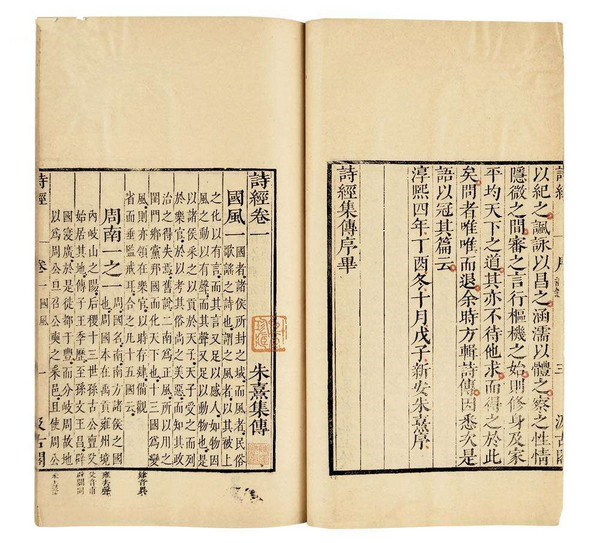 以紀之諷詠以昌之涵濡以體之察之性情
隱微之間審之言行樞機之始則修身及家
平均天下之道其亦不待他求而得之於此
矣問者唯唯而退余時方輯詩傳因悉次是
語以冠其篇云
淳熙四年丁酉冬十月戊子新安朱熹序
詩經集傳序畢
詩經卷一
朱熹集傳
國風一 國者諸侯所封之域而風者民俗
歌謠之詩也謂之風者以其被上
之化以有言而其言又足以感人如物因
風之動以有聲而其聲又足以動物也是
以諸侯采之以貢於天子天子受之而列
於樂官於以考其俗尚之美惡而知其政
治之得失焉舊說二南為正風所以用之
閨門鄉黨邦國而化天下也十三國為變
風則亦領在樂官以時存肄備觀
省而垂監戒耳合之凡十五國云
肄音異
周南一之一 周國名南南方諸侯之國
也周國本在禹貢雍州境
內岐山之陽后稷十三世孫古公亶父
始居其地傳子王季歷至孫文王昌辟
國寖廣於是徙都于豐而分岐周故地
以為周公旦召公奭之采邑且使周公
雍去聲
父音甫
辟闢同
詩經 卷一 國風 一 汲古閣